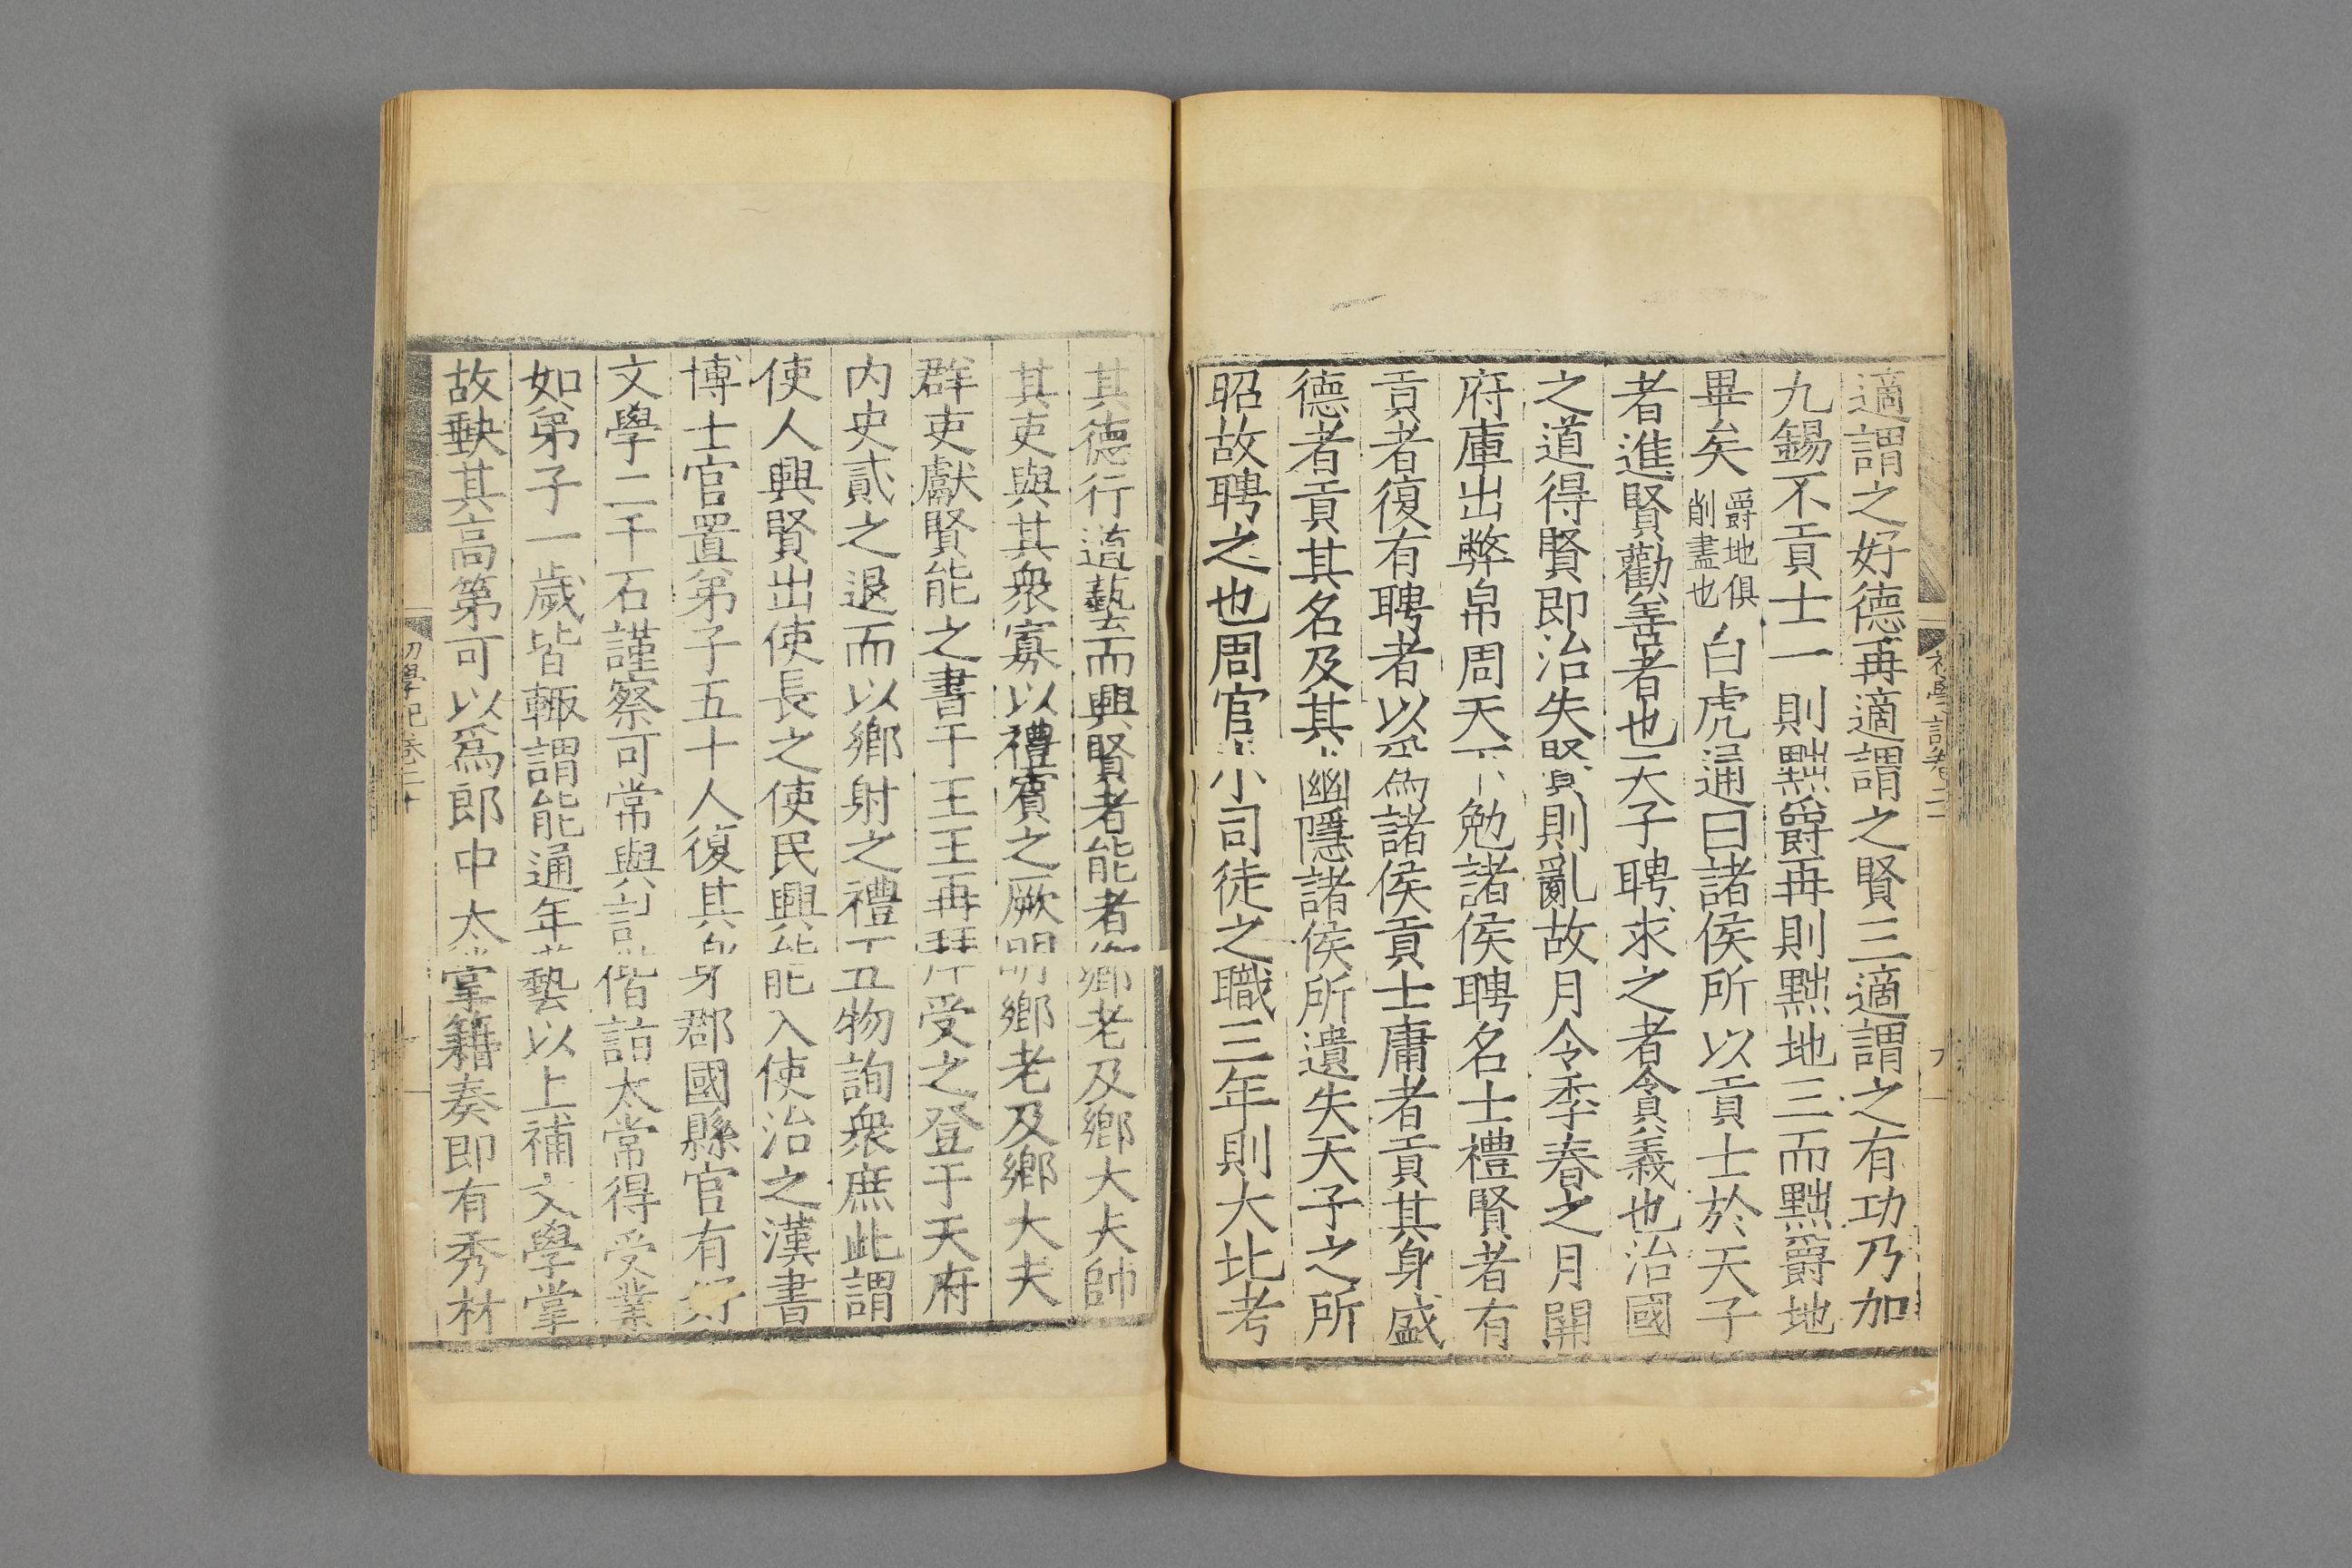 適謂之好德再適謂之賢三適謂之有功乃加
九錫不貢士一則黜爵再則黜地三而黜爵地
畢矣爵地俱削盡也白虎通曰諸侯所以貢士於天子
者進賢勸善者也天子聘求之者貪義也治國
之道得賢即治失賢則亂故月令季春之月開
府庫出弊帛周天下勉諸侯聘名士禮賢者有
貢者復有聘者以爲諸侯貢士庸者貢其身盛
德者貢其名及其幽隱諸侯所遺失天子之所
昭故聘之也周官小司徒之職三年則大比考
其德行道藝而興賢者能者鄉老及鄉大夫帥
其吏與其衆寡以禮賓之厥明鄉老及鄉大夫
群吏獻賢能之書于王王再拜受之登于天府
内史貳之退而以鄉射之禮五物詢衆庶此謂
使人興賢出使長之使民興能入使治之漢書
博士官置弟子五十人復其身郡國縣官有好
文學二千石謹察可常與計偕詣太常得受業
如弟子一歲皆輙謂能通年藝以上補文學掌
故缺其高第可以爲郎中太常籍奏即有秀材
初學記卷二十